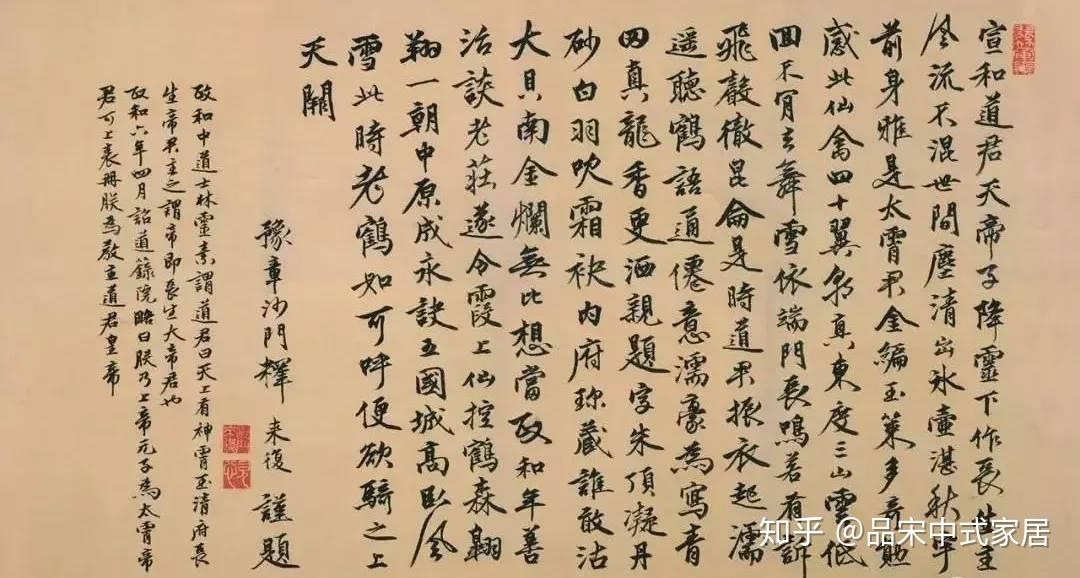 宣和道君天帝子降靈下作長生主
風流不混世間塵清出冰壺湛秋宇
前身雅是太霄君金編玉策多奇勲
感此仙禽四十翼朝真東度三山雲低
回不肎去舞雪依端門長鳴若有訴
飛聲徹昆侖是時道君振衣起濡
遥聽鶴語通僊意濡豪為寫青
田真龍香更洒親題字朱頂凝丹
砂白羽吹霜袂内府珍藏誰敢沽
大貝南金爛無比想當政和年善
治談老莊遂令霞上仙控鶴森翱
翔一朝中原成永訣五國城高卧風
雪此時老鶴如可呼便欲騎之上
天闕
豫章沙門釋 来復 謹題
政和中道士林靈素謂道君曰天上有神霄玉清府長
生帝君主之謂帝即長生大帝君也
政和六年四月詔道籙院略曰朕乃上帝元子為太霄帝
君可上表冊朕為教主道君皇帝
知乎 @品宋中式家居